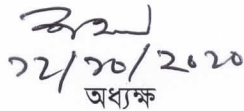 ১২/১০/২০২০
অধ্যক্ষ